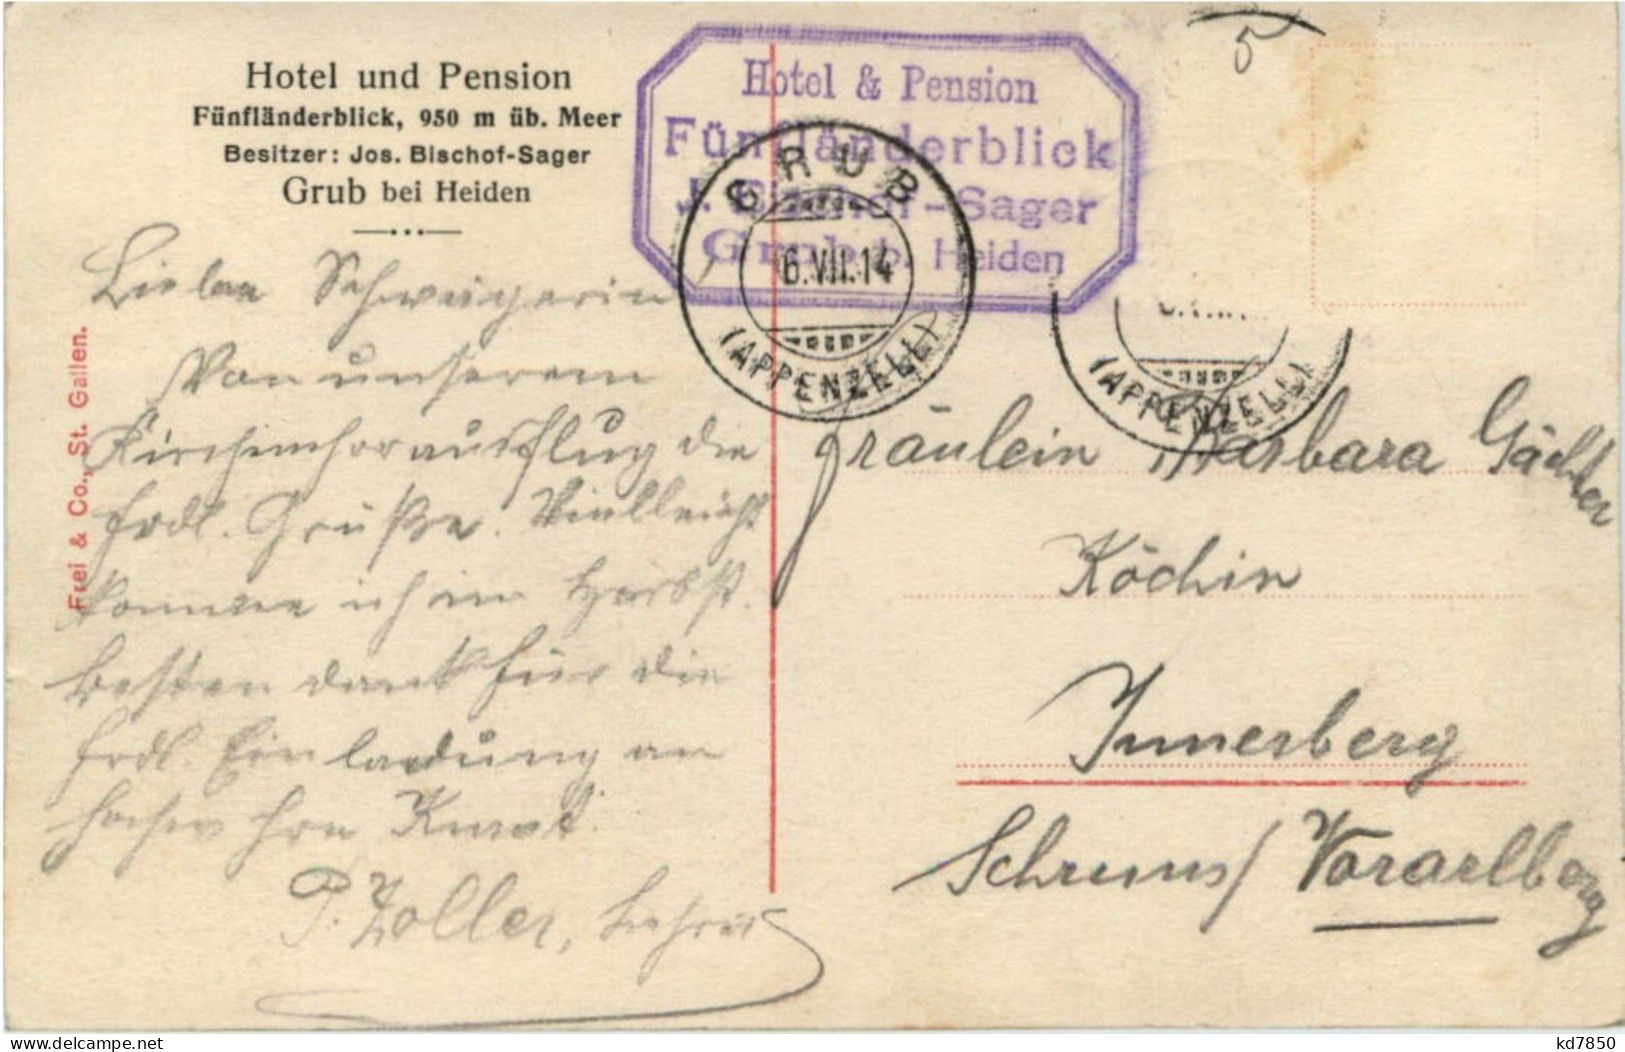 Hotel und Pension
Fünfländerblick, 950 m üb. Meer
Besitzer: Jos. Bischof-Sager
Grub bei Heiden
Hotel & Pension
Fünfländerblick
J. Bischof-Sager
Grub b. Heiden
GRUB
6.VII.14
(APPENZELL)
(APPENZELL)
5
Frei & Co., St. Gallen.
Liebe Schwägerin
Von unserem
Kirchenchorausflug die
frdl. Grüße. Vielleicht
komme ich im Herbst.
Besten Dank für die
frdl. Einladung an
P. Zoller, Lehrer
Fräulein Barbara Gächter
Köchin
Innerberg
Schruns/Vorarlberg
kd7850